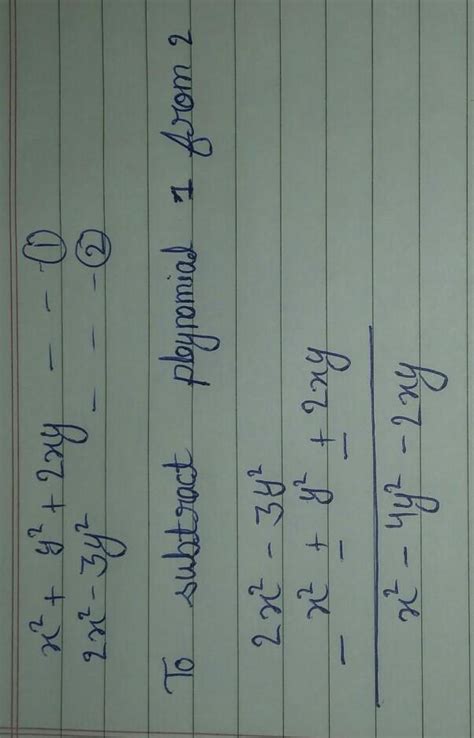 x² + y² + 2xy - - - ①
2x² - 3y² - - - ②
To subtract ploynomial 1 from 2
2x² - 3y²
x² + y² + 2xy
- - -
x² - 4y² - 2xy